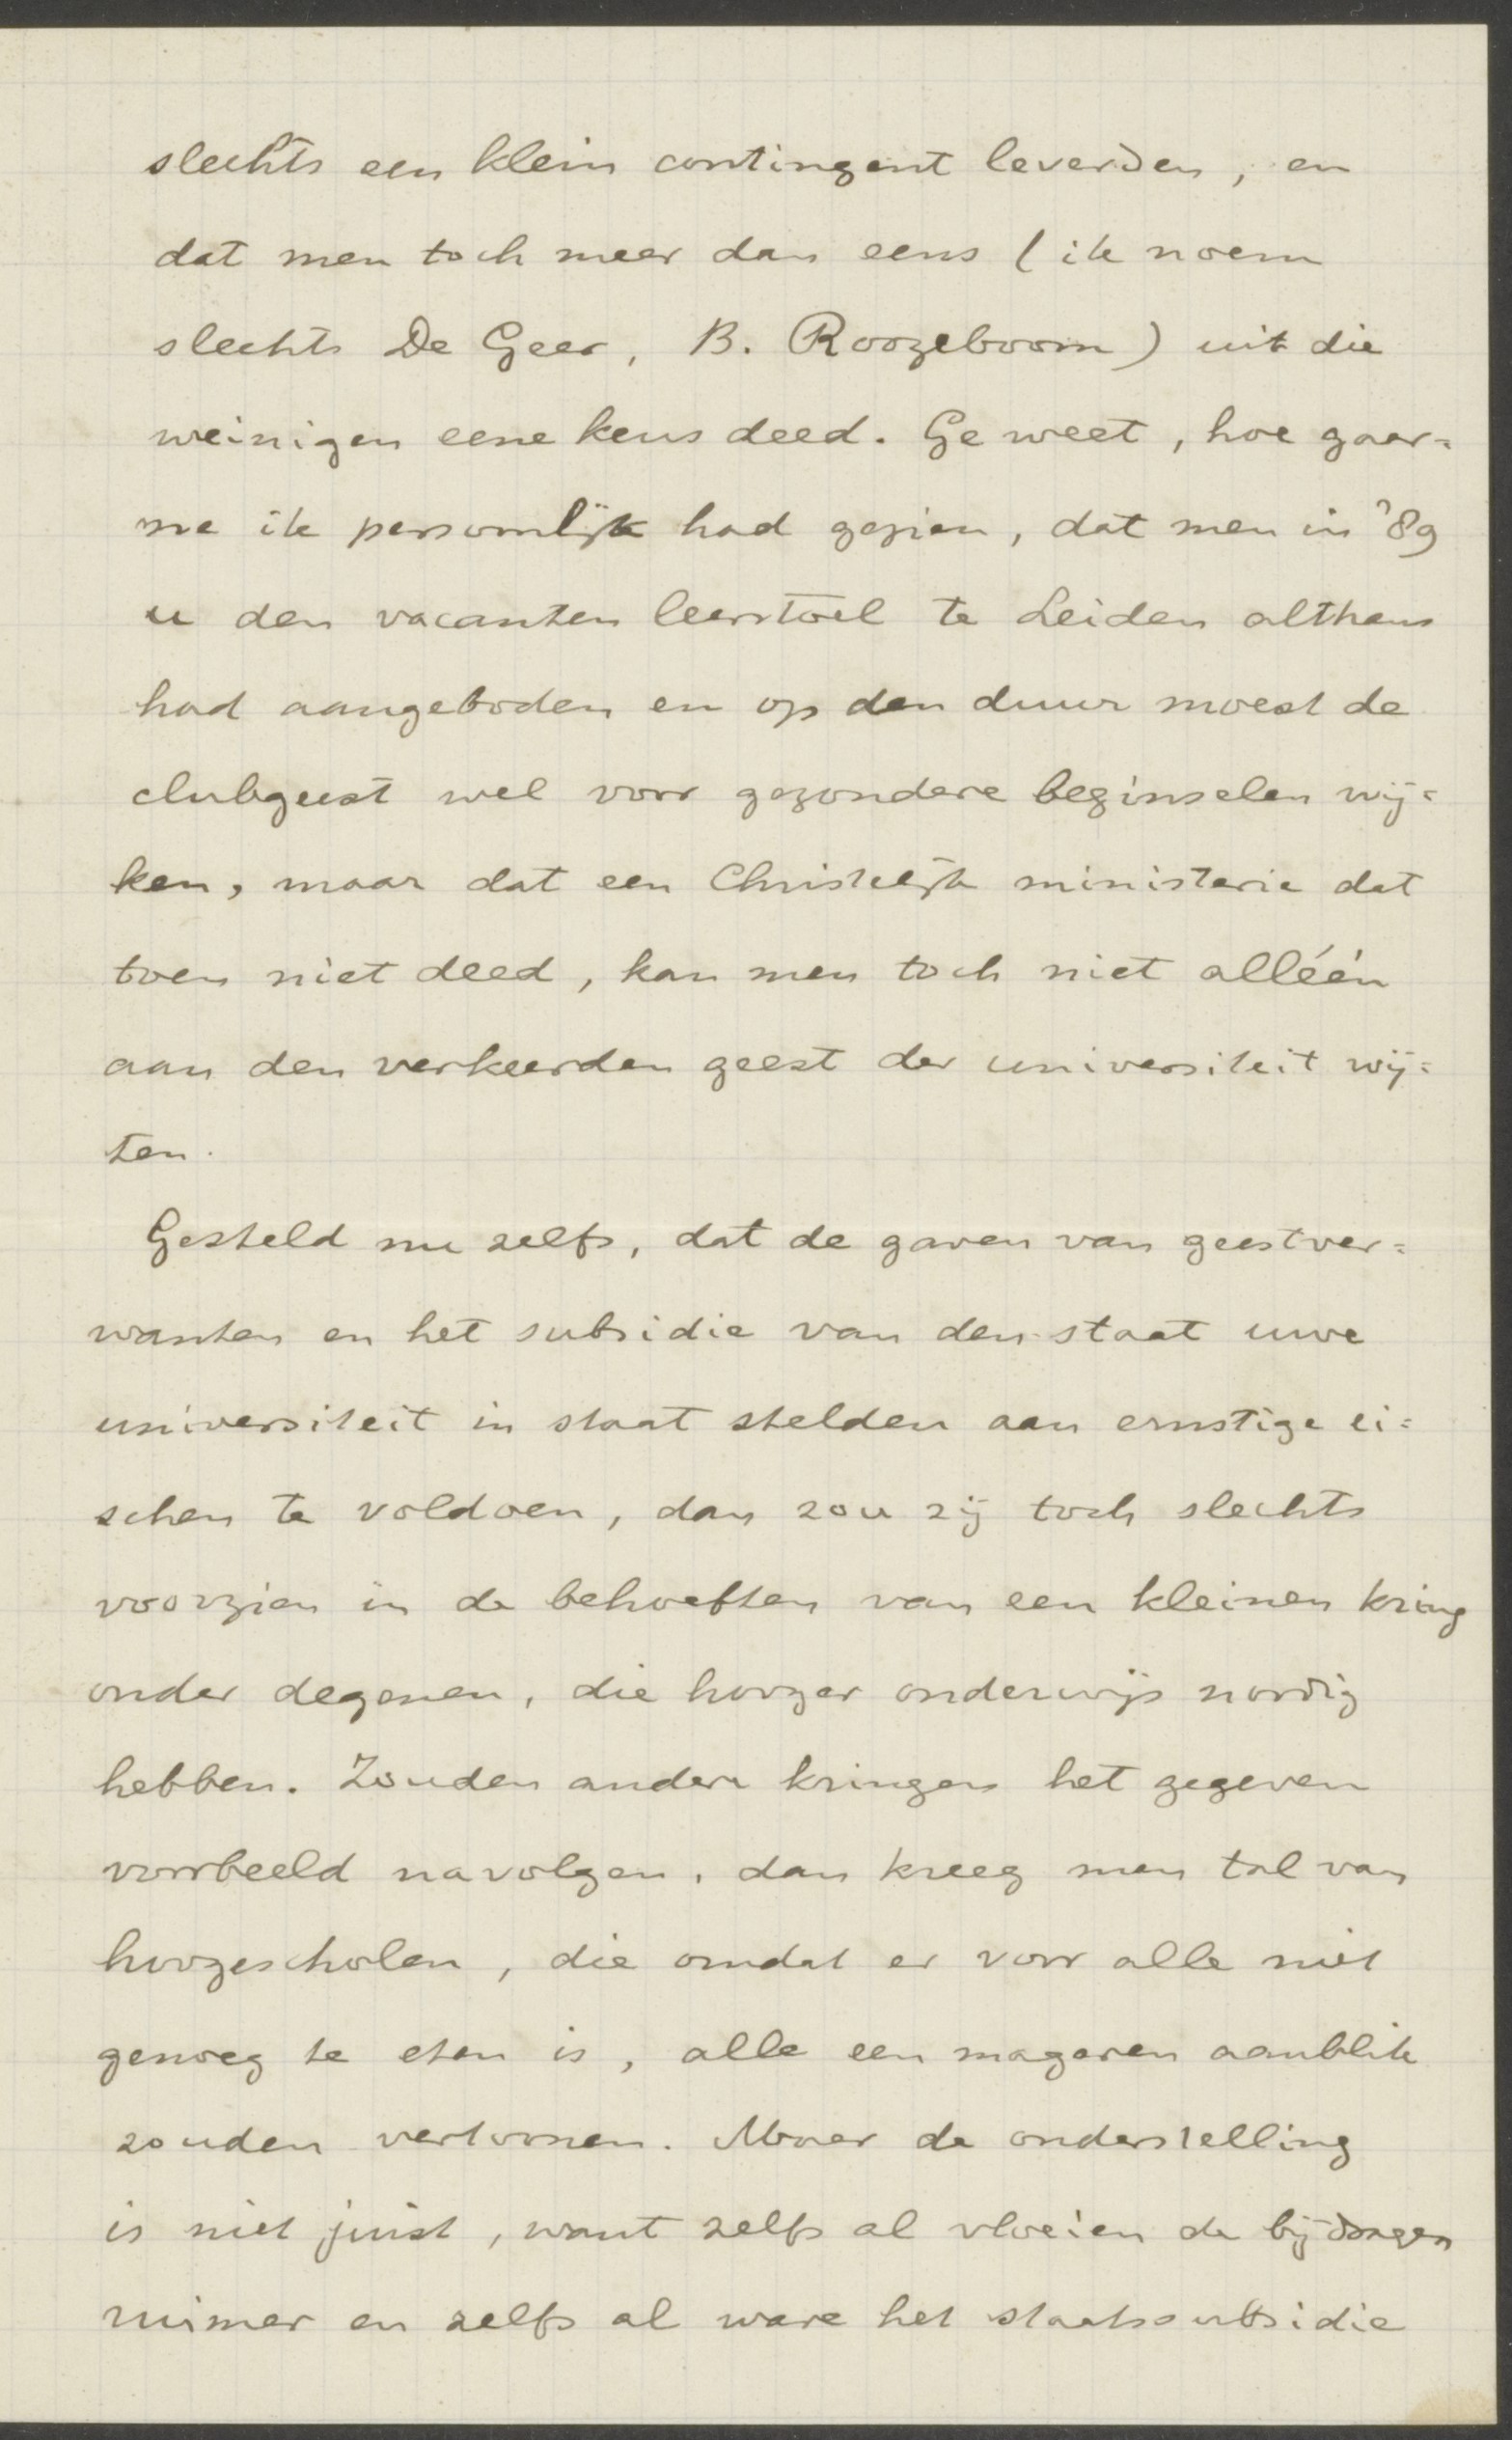 slechts een klein contingent leverden, en
dat men toch meer dan eens (ik noem
slechts De Geer, B. Roozeboom) uit die
weinigen eene keus deed. Ge weet, hoe gaar=
ne ik persoonlijk had gezien, dat men in '89
u den vacanten leerstoel te Leiden althans
had aangeboden en op den duur moest de
clubgeest wel voor gezondere beginselen wij=
ken, maar dat een Christelijk ministerie dat
toen niet deed, kan men toch niet alléén
aan den verkeerden geest der universiteit wij=
ten.
Gesteld nu zelfs, dat de gaven van geestver=
wanten en het subsidie van den staat uwe
universiteit in staat stelden aan ernstige ei=
schen te voldoen, dan zou zij toch slechts
voorzien in de behoeften van een kleinen kring
onder degenen, die hooger onderwijs noodig
hebben. Zouden andere kringen het gegeven
voorbeeld navolgen, dan kreeg men tal van
hoogescholen, die omdat er voor alle niet
genoeg te eten is, alle een mageren aanblik
zouden vertoonen. Maar de onderstelling
is niet juist, want zelfs al vloeien de bijdragen
ruimer en zelfs al ware het staatssubsidie